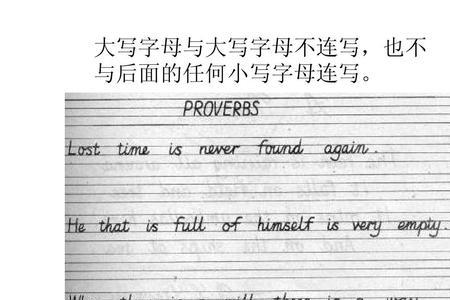 大写字母与大写字母不连写，也不
与后面的任何小写字母连写。
PROVERBS
Lost time is never found again.
He that is full of himself is very empty.